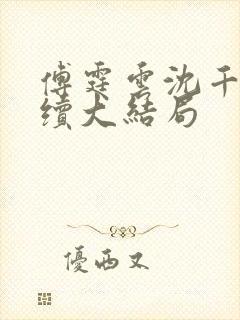 傅霆雲沈千
續大結局
優西又